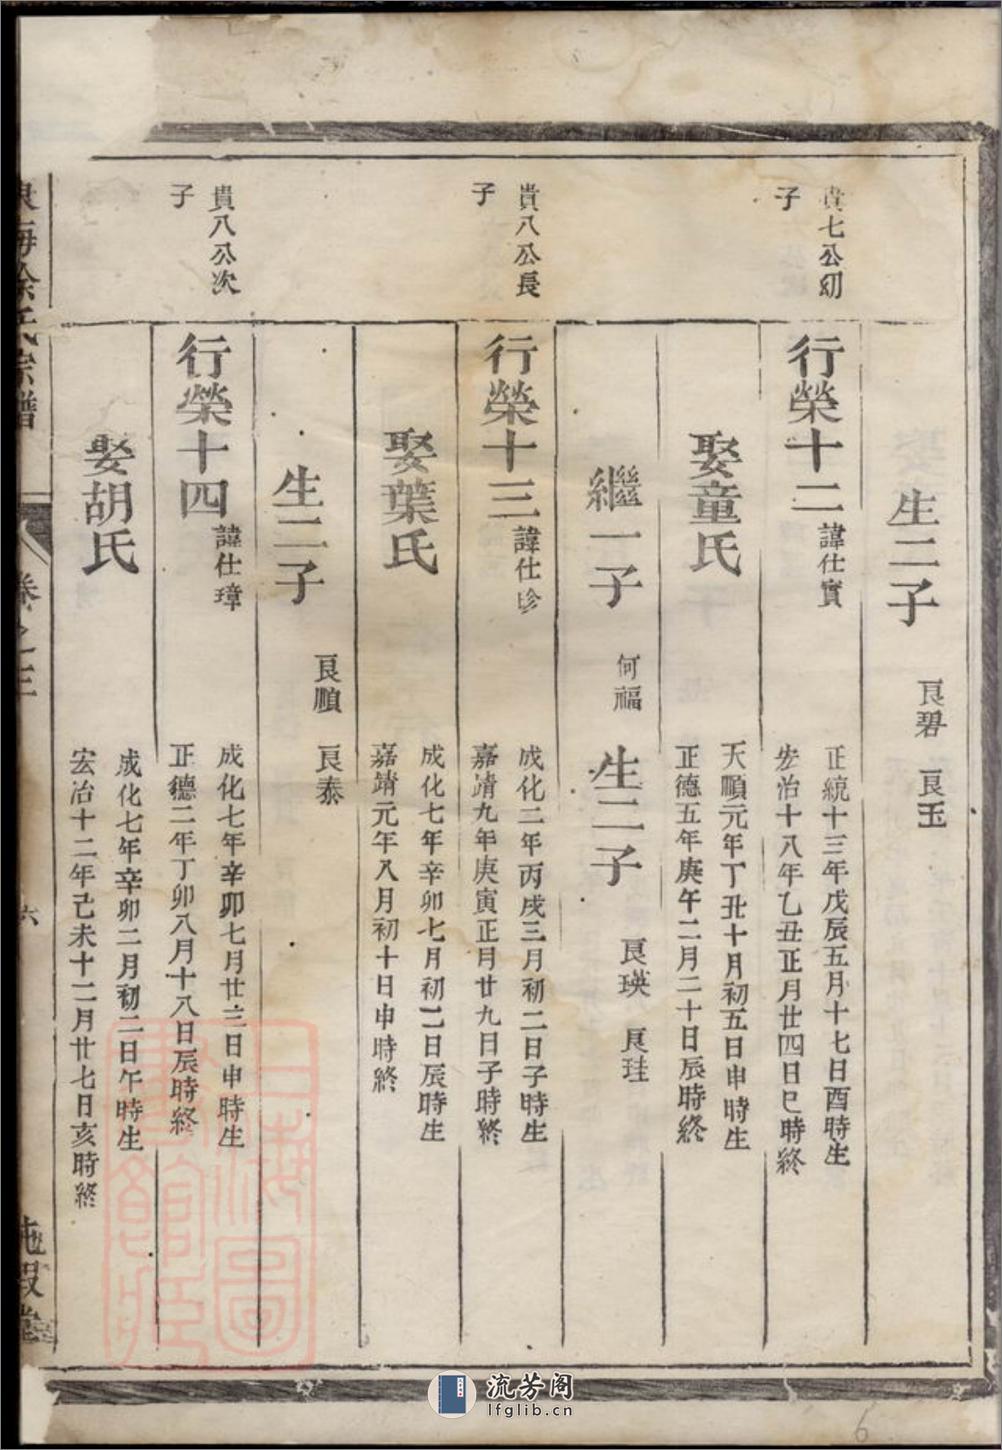 生二子 良碧 良玉
貴七公幼子
行榮十二 諱仕實 正統十三年戊辰五月十七日酉時生
宏治十八年乙丑正月廿四日巳時終
娶童氏 天順元年丁丑十月初五日申時生
正德五年庚午二月二十日辰時終
繼一子 何福 生二子 良瑛 良珪
貴八公長子
行榮十三 諱仕珍 成化二年丙戌三月初二日子時生
嘉靖九年庚寅正月廿九日子時終
娶葉氏 成化七年辛卯七月初二日辰時生
嘉靖元年八月初十日申時終
生二子 良順 良泰
貴八公次子
行榮十四 諱仕璋 成化七年辛卯七月廿三日申時生
正德二年丁卯八月十八日辰時終
娶胡氏 成化七年辛卯二月初二日午時生
宏治十二年己未十二月廿七日亥時終
東海徐氏宗譜 卷之三 六
上海圖書館藏
流芳阁
lfglib.cn
6